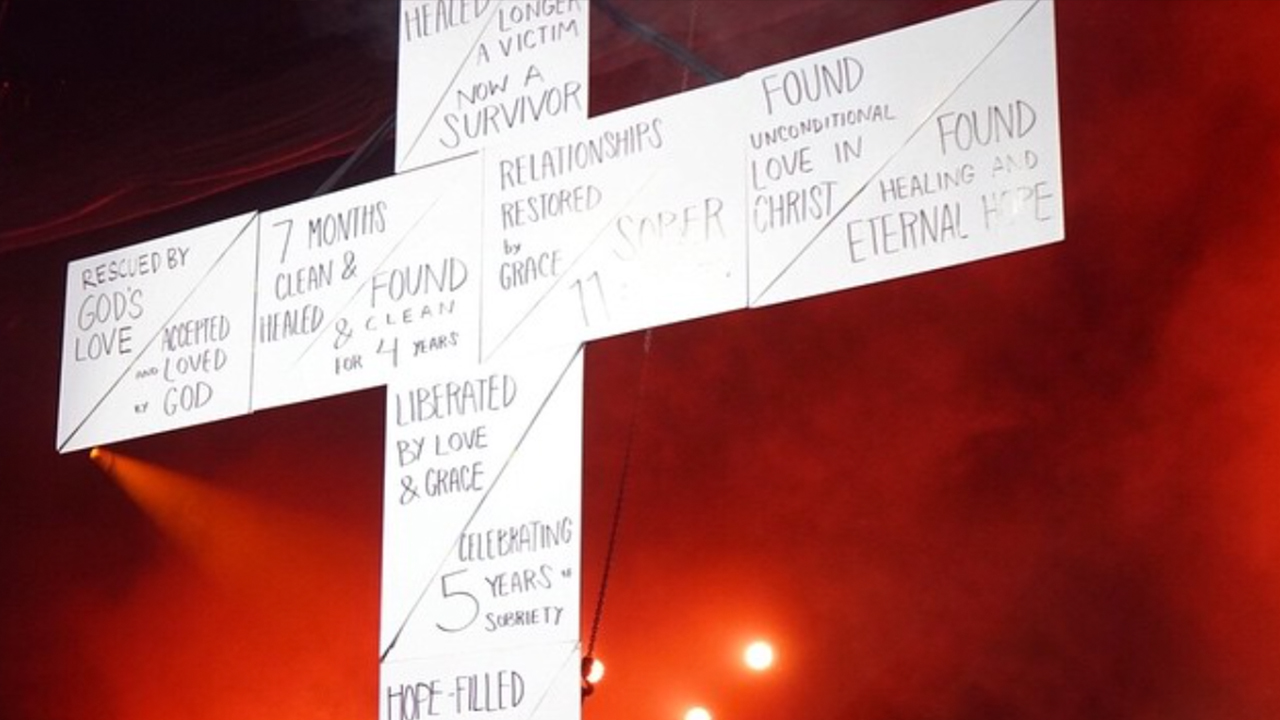 HEALED
LONGER
A VICTIM
NOW A
SURVIVOR
RESCUED BY
GOD'S
LOVE
ACCEPTED
AND LOVED
BY GOD
7 MONTHS
CLEAN &
HEALED
FOUND
& CLEAN
FOR 4 YEARS
RELATIONSHIPS
RESTORED
by
GRACE
SOBER
11
FOUND
UNCONDITIONAL
LOVE IN
CHRIST
FOUND
HEALING AND
ETERNAL HOPE
LIBERATED
BY LOVE
& GRACE
CELEBRATING
5 YEARS OF
SOBRIETY
HOPE-FILLED